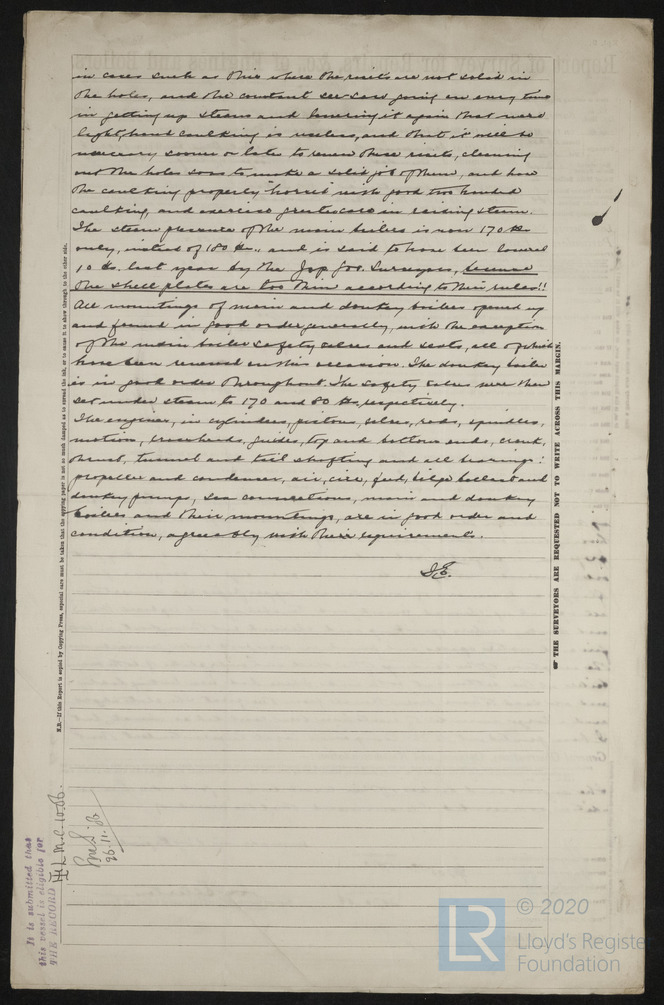 in cases such as this where the rivets are not solid in
the holes, and the constant see-saw going on every time
in getting up steam and lowering it again that mere
light, hand caulking is useless, and that it will be
necessary sooner or later to renew these rivets, cleaning
out the holes so as to make a solid job of them, and have
the caulking properly horsed with good two handed
caulking, and exercise greater care in raising steam.
The steam pressure of the main boilers is now 170 lbs
only, instead of 180 lbs., and is said to have been lowered
10 lbs. last year by the Jap. Gov. Surveyors, because
the shell plates are too thin according to their rules!!
All mountings of main and donkey boilers opened up
and found in good order generally, with the exception
of the main boiler safety valves and seats, all of which
have been renewed on this occasion. The donkey boiler
is in good order throughout. The safety valves were then
set under steam to 170 and 80 lbs, respectively.
The engines, in cylinders, pistons, valves, rods, spindles,
motion, crossheads, guides, top and bottom ends, crank,
thrust, tunnel and tail shafting and all bearings:
propeller and condenser, air, circ, feed, bilge ballast and
donkey pumps, sea connections, main and donkey
boilers and their mountings, are in good order and
condition, agreeably with their requirements.
N.B.—If this Report is copied by Copying Press, especial care must be taken that the copying paper is not so much damped as to spread the ink, or to cause it to show through to the other side.
THE SURVEYORS ARE REQUESTED NOT TO WRITE ACROSS THIS MARGIN.
It is submitted that
this vessel is eligible for
THE RECORD
L.M.C. 10.06.
26.11.06
LR
© 2020
Lloyd's Register
Foundation